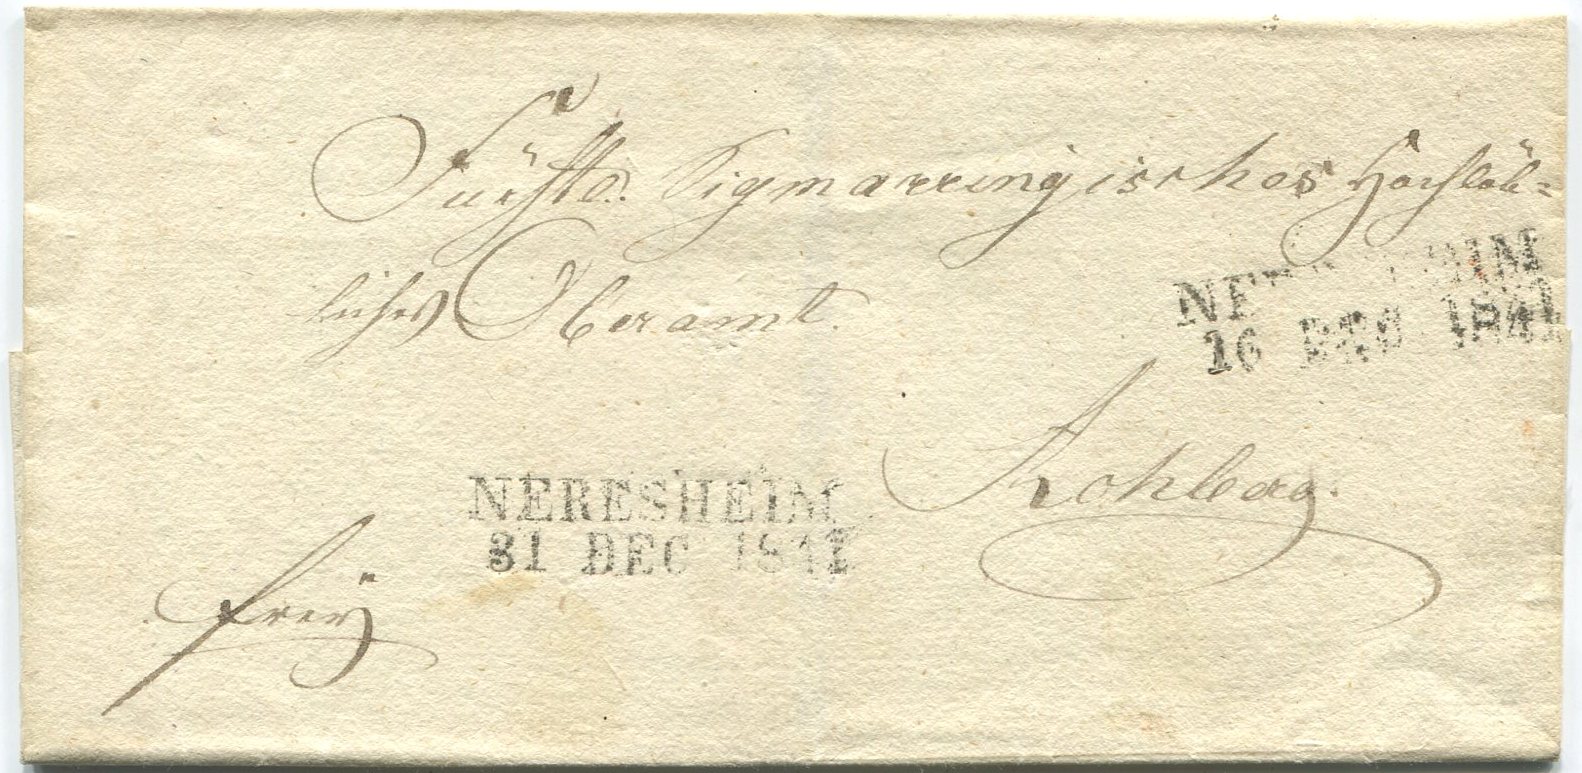 Fürstl. Sigmaringisches Hochlöb=
liches Oberamt.
NERESHEIM
16 DEC 1841
NERESHEIM
31 DEC 1841
freÿ